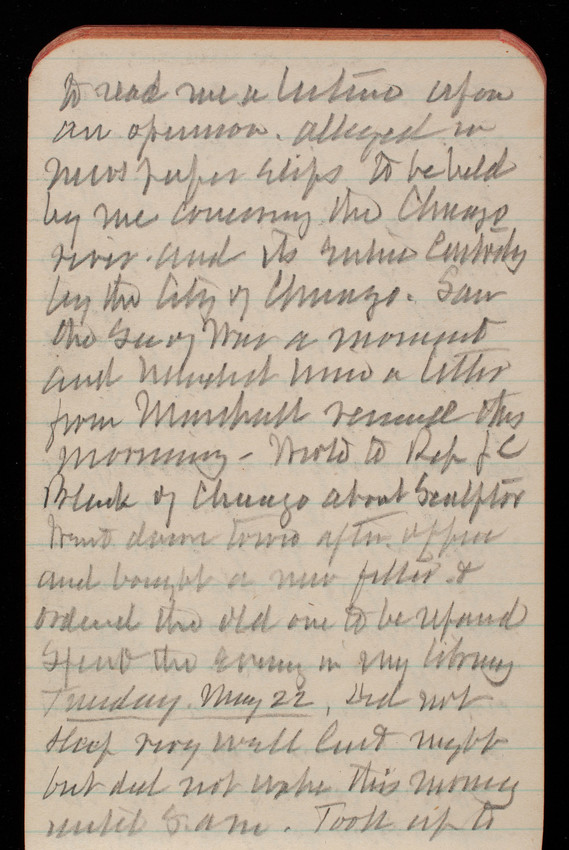 to read me a lecture upon
an opinion alleged in
news paper slips to be held
by me concerning the Chicago
river and its entire custody
by the City of Chicago. Saw
the Sec of War a moment
and him a letter
from Marshall received this
morning - Wrote to Rep J C
Black of Chicago about Sculptor
Went down town after office
and bought a new filter &
ordered the old one to be repaired
Spent the evening in my library
Tuesday May 22, Did not
sleep very well last night
but did not wake this morning
until 8 am. Took up to